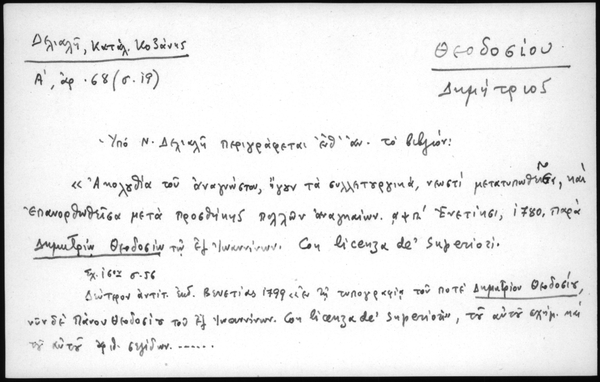 Δελιαλῆ, Κατάλ. Κοζάνης
Θεοδοσίου
Α', ἀρ. 68 (σ. 19)
Δημήτριος
Ὑπὸ Ν. Δελιαλῆ περιγράφεται τὸ βιβλίον:
«Ἀκολουθία τοῦ ἀναγνώστου, ἤγουν τὰ συλλειτουργικά, νεωστὶ μετατυπωθεῖσα, καὶ
ἐπανορθωθεῖσα μετὰ προσθήκης πολλῶν ἀναγκαίων. ͵αψπ' Ἐνετίησι, 1780, παρὰ
Δημητρίῳ Θεοδοσίου τῷ ἐξ Ἰωαννίνων. Con licenza de' Superiori.
Σχ. 16ον σ. 56
Δεύτερον ἀντίτ. ἐκδ. Βενετίας 1799 «ἐν τῇ τυπογραφίᾳ τοῦ ποτὲ Δημητρίου Θεοδοσίου,
νῦν δὲ Πάνου Θεοδοσίου τοῦ ἐξ Ἰωαννίνων. Con licenza de' Superiori», τοῦ αὐτοῦ σχήμ. καὶ
τοῦ αὐτοῦ ἀριθ. σελίδων. ......